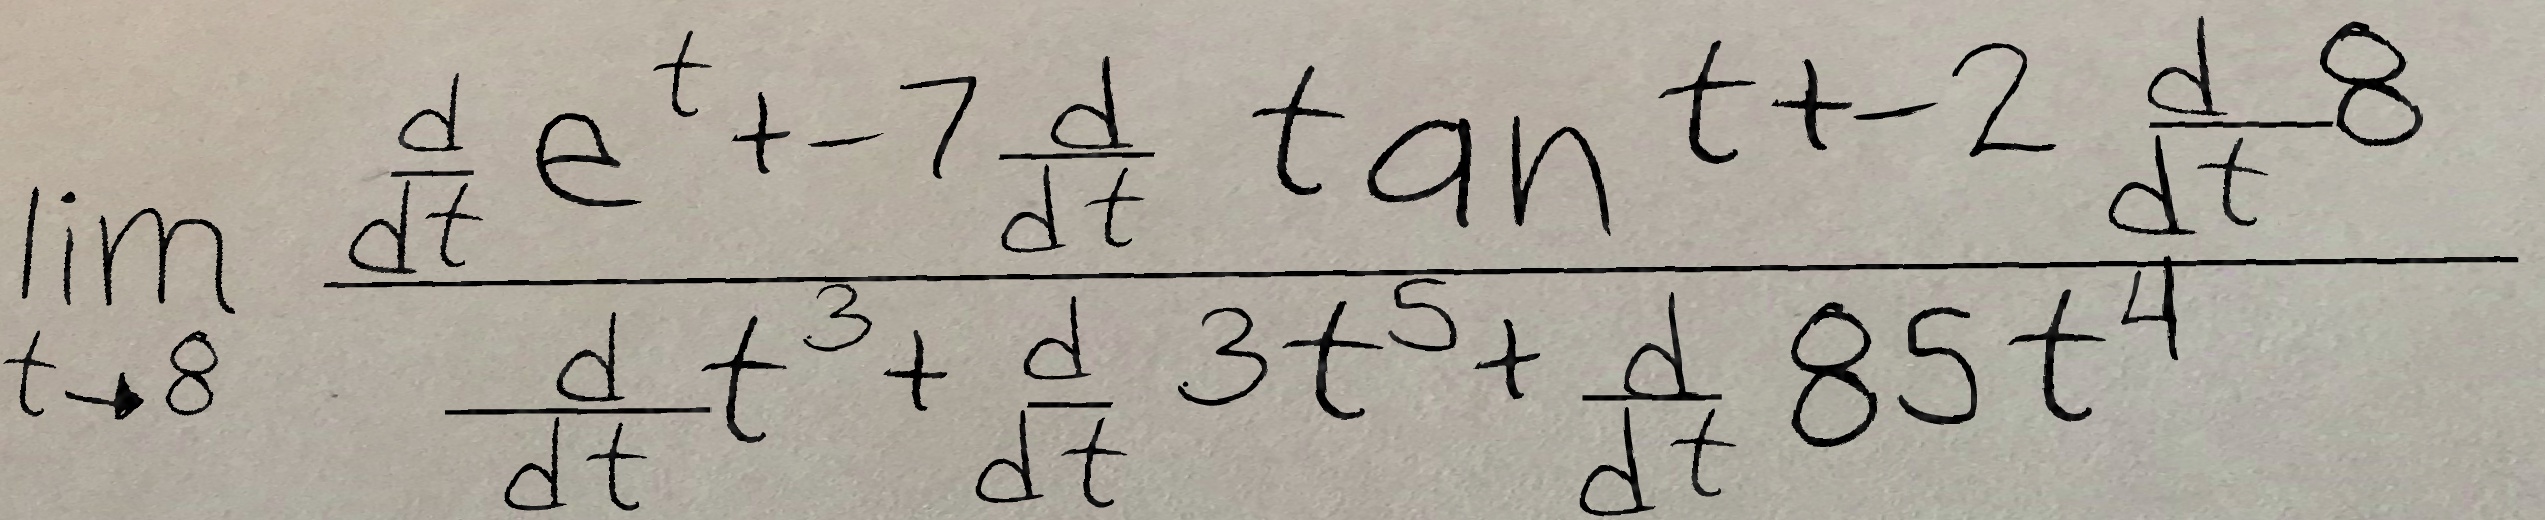 \lim_{t \to 8} \frac{\frac{d}{dt} e^{t} + -7 \frac{d}{dt} \tan t + -2 \frac{d}{dt} 8}{\frac{d}{dt} t^{3} + \frac{d}{dt} 3t^{5} + \frac{d}{dt} 85t^{4}}